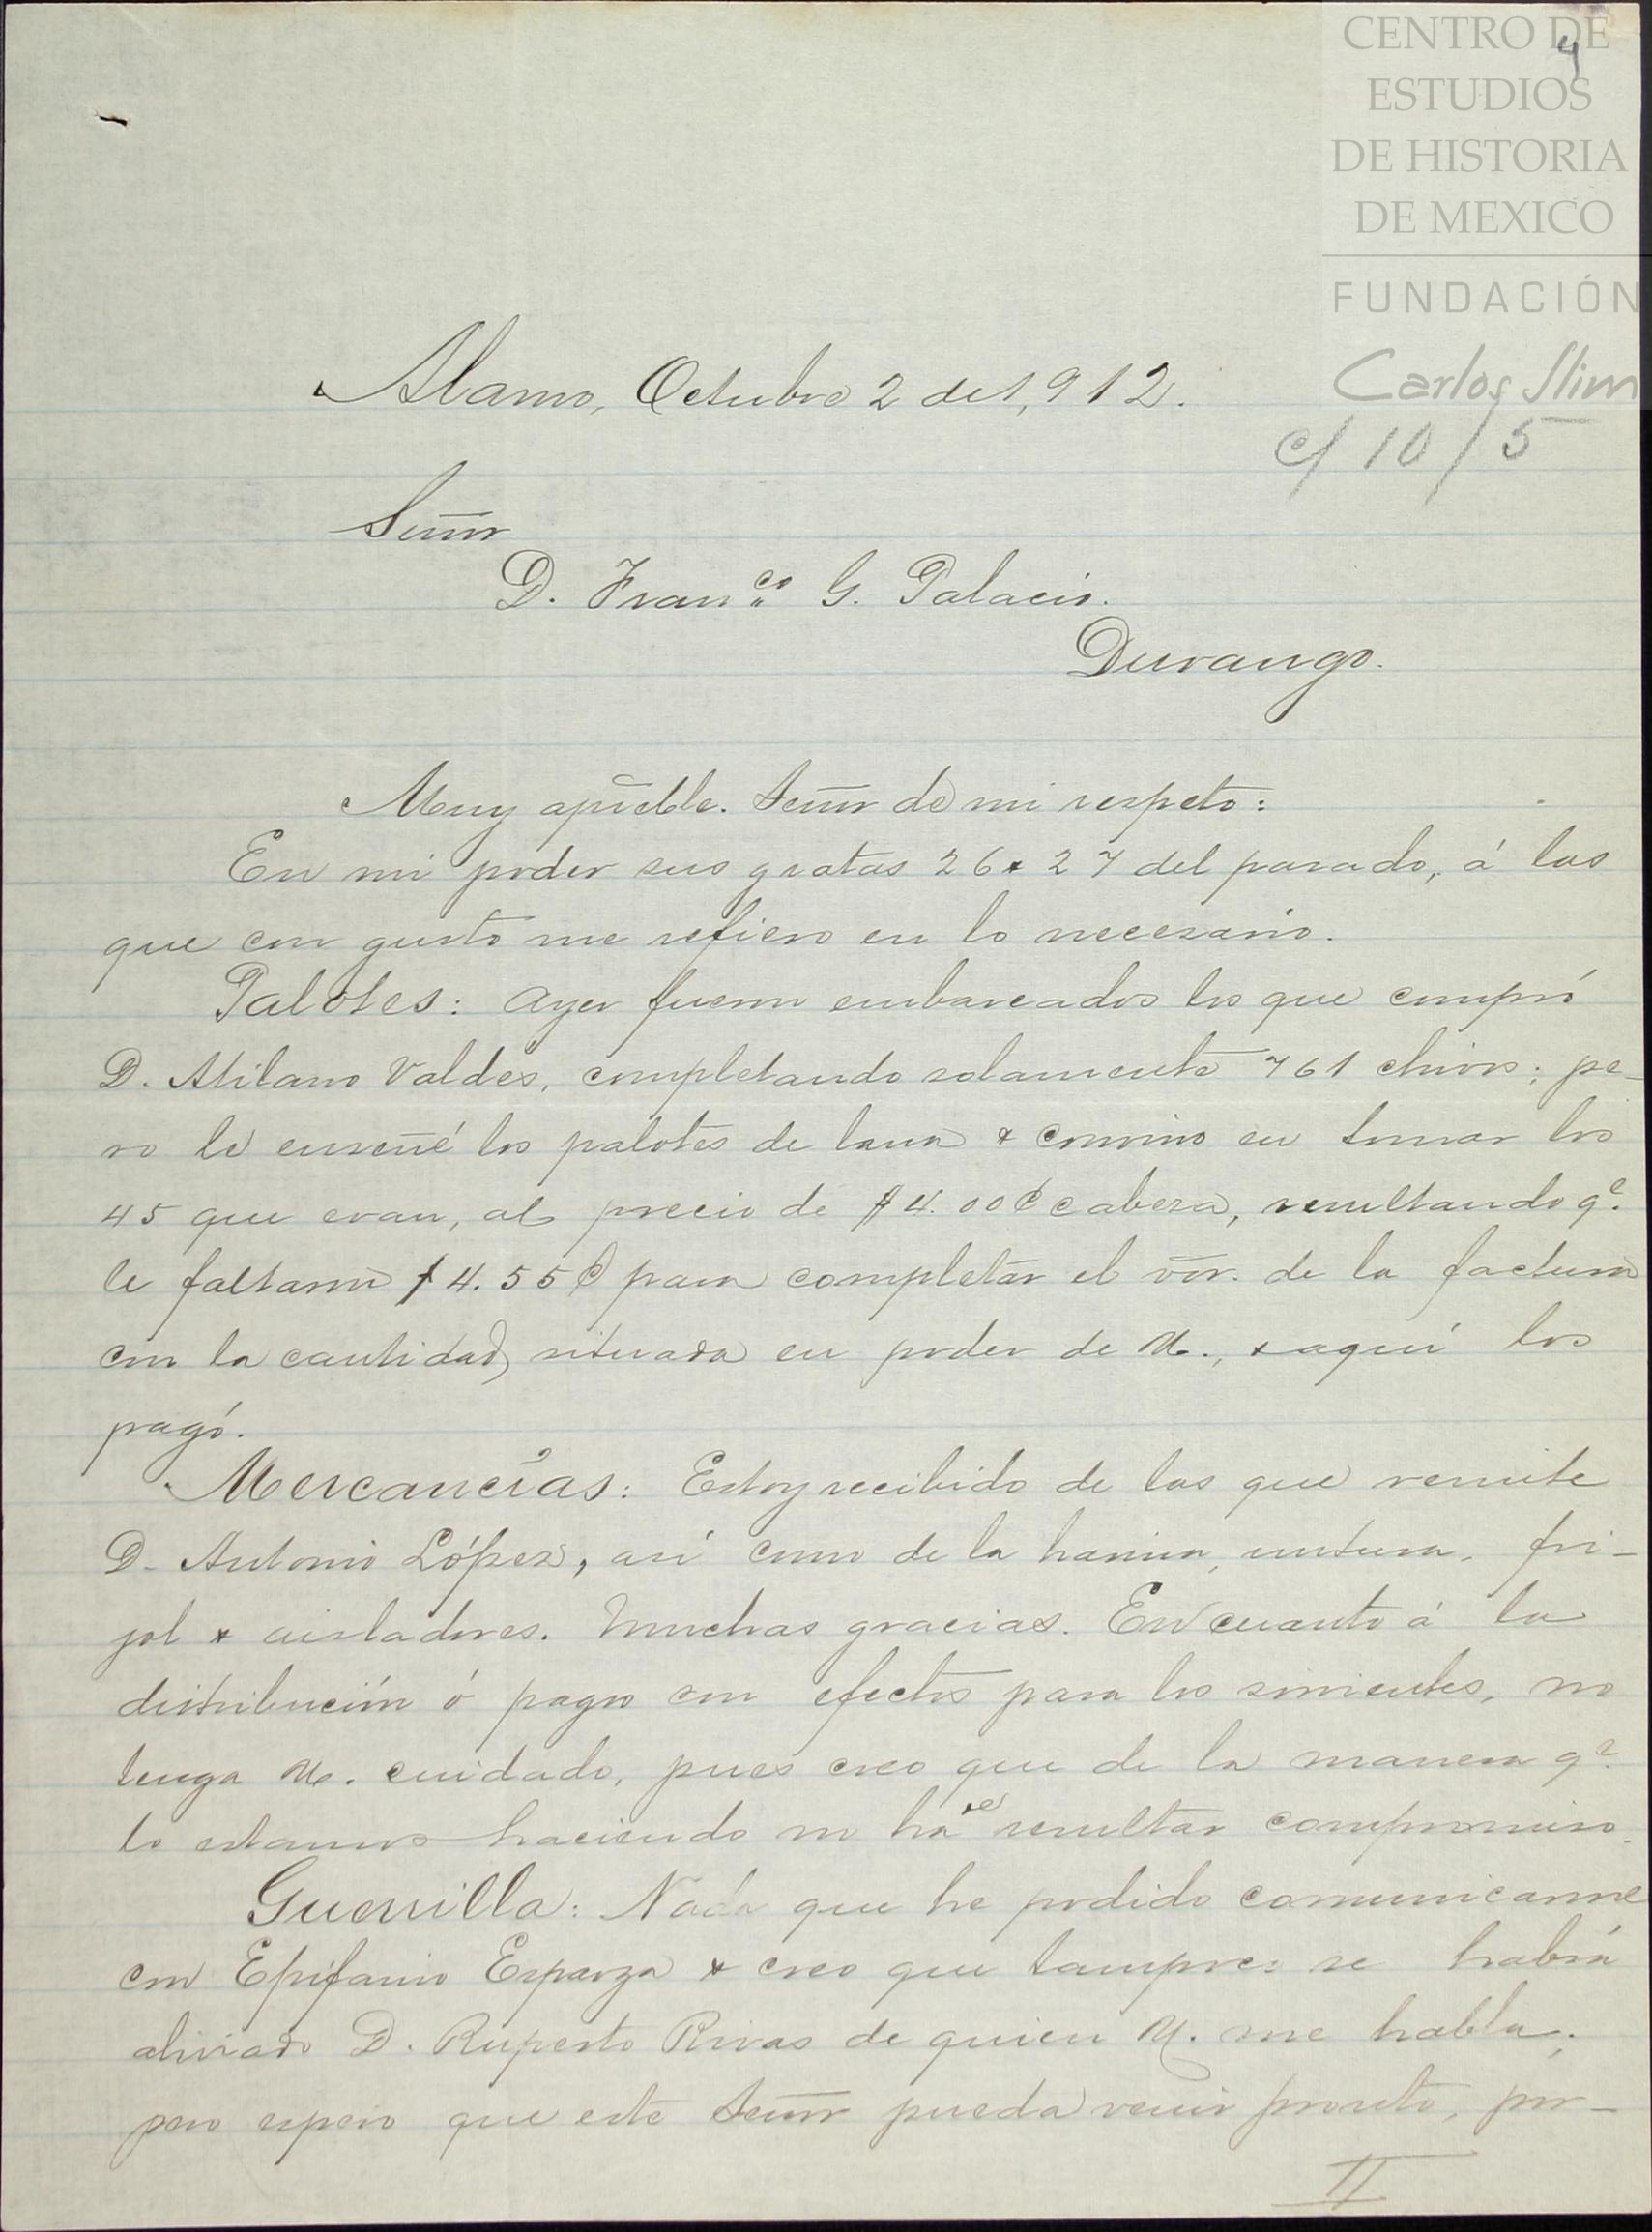 CENTRO DE
ESTUDIOS
DE HISTORIA
DE MEXICO
FUNDACIÓN
Carlos Slim
4
c/ 10 / 5
Alamo, Octubre 2 de 1,912.
Señor
D. Fran.co G. Palacio.
Durango.
Muy apreble. Señor de mi respeto:
En mi poder sus gratas 26 & 27 del pasado, á las
que con gusto me refiero en lo necesario.
Palotes: Ayer fueron embarcados los que compró
D. Atilano Valdés, completando solamente 761 chivos; pe-
ro le enseñé los palotes de lana & convino en tomar los
45 que eran, al precio de $4.00¢ cabeza, resultando q.e
le faltaron $4.55¢ para completar el vor. de la factura
con la cantidad situada en poder de U., & aquí los
pagó.
Mercancías: Estoy recibido de las que remite
D. Antonio López, así como de la harina, untura, fri-
jol & aisladores. Muchas gracias. En cuanto á la
distribución ó pago con efectos para los sirvientes, no
tenga U. cuidado, pues creo que de la manera q.e
lo estamos haciendo no ha de resultar compromiso.
Guerrilla: Nada que he podido comunicarme
con Epifanio Esparza & creo que tampoco se habrá
aliviado D. Ruperto Rivas de quien U. me habla;
pero espero que este Señor pueda venir pronto, por-
II